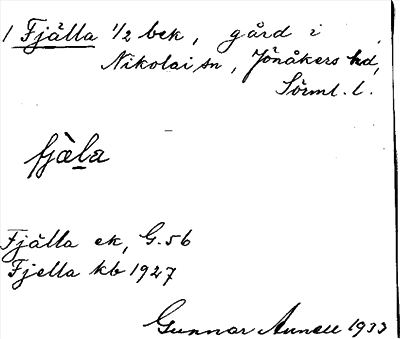 1 Fjälla 1/2 bek, gård i
Nikolai sn, Jönåkers hd,
Sörml. l.
fjä̀la
Fjälla ek, G.56
Fjella kb 1927
Gunnar Annell 1933